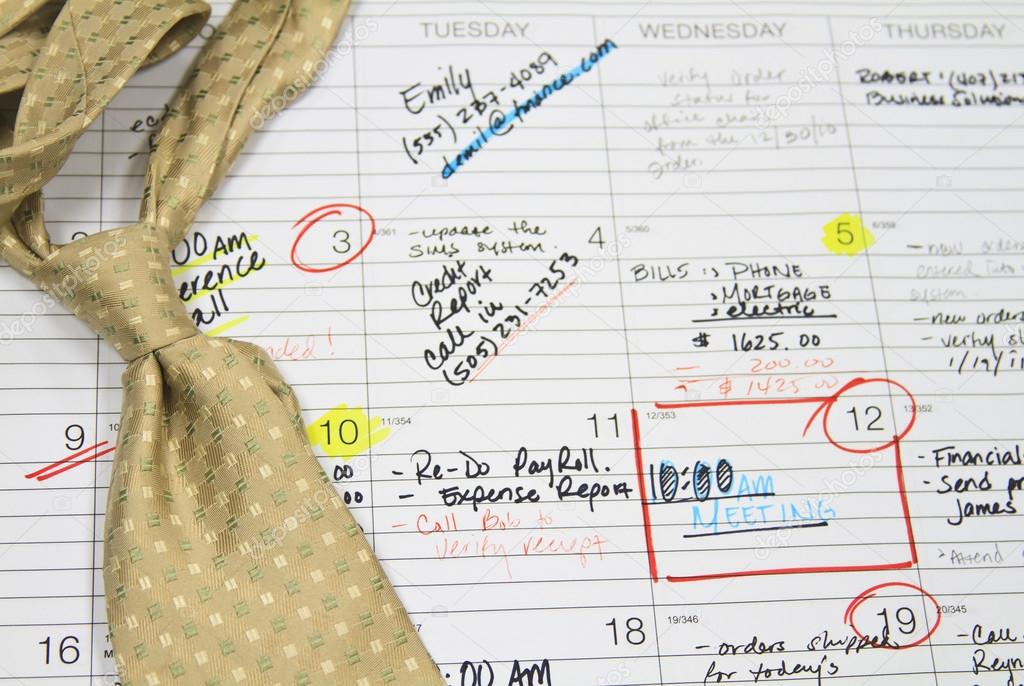 TUESDAY
WEDNESDAY
THURSDAY
Emily
(555) 287-4089
demil@finance.com
Verify order
status for
office chairs
from the 12/30/10
order.
ROBERT: (407)
Business Solution
00 AM
erence
all
3
4/361
- update the
SIMS system.
Credit
Report
Call in
(505) 231-7253
4
5/360
BILLS : > PHONE
> MORTGAGE
> electric
$ 1625.00
- 200.00
= $ 1425.00
5
6/359
- new orders
entered into
system.
- new orders
- verify
1/19/11
9
10
11/354
00
00
- Re-Do PayRoll.
- Expense Report
- Call Bob to
verify reciept
11
12/353
10:00 AM
MEETING
12
13/352
- Financial
- Send
James
> Attend
16
:00 AM
18
19/346
- orders shipped
for today's
19
20/345
- Call
Reyn
depositphotos